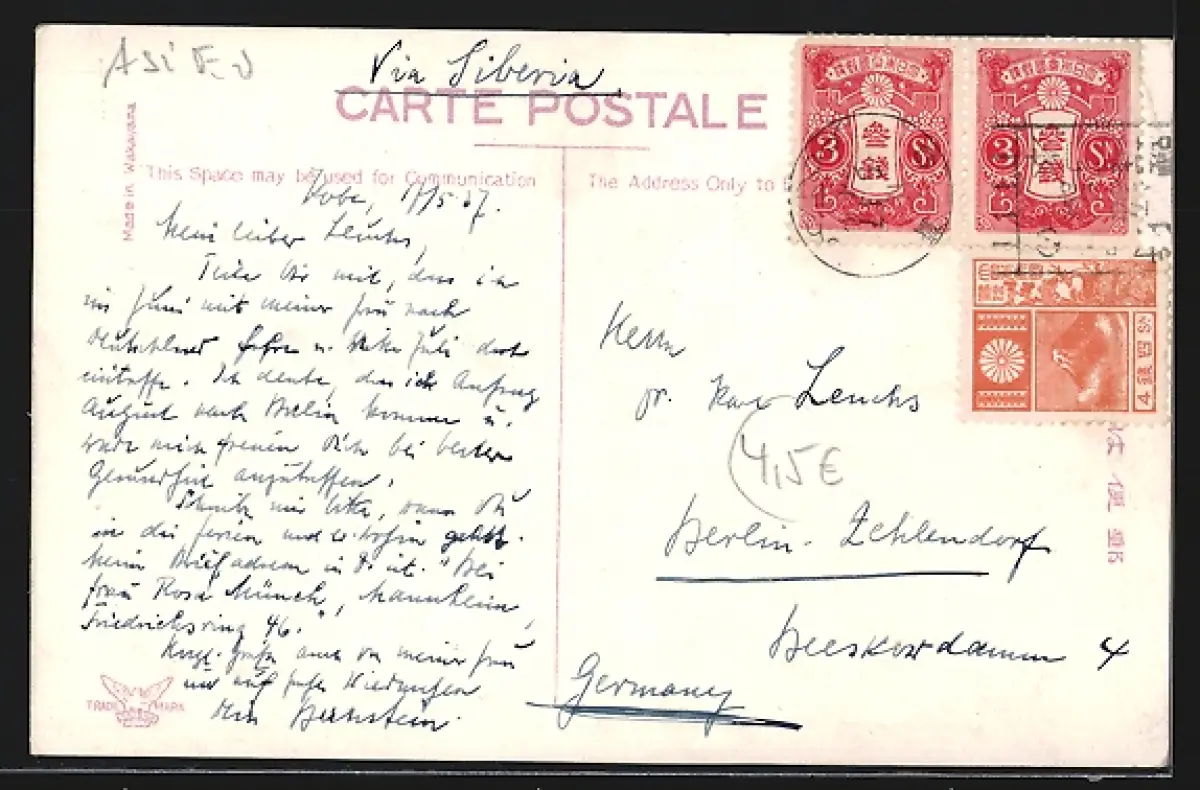 ASIEN
Via Siberia
CARTE POSTALE
Made in Wakayama
This Space may be used for Communication
The Address Only to
Kobe, 5.37.
Mein lieber Leuchs,
Teile Dir mit, dass ich
im Juni mit meiner Frau nach
Deutschland fahre u. Juli dort
eintreffe. Ich denke, dass ich Anfang
August nach Berlin komme u.
würde mich freuen Dich bei bester
Gesundheit anzutreffen.
Schreib mir bitte, wann Du
in die Ferien und wohin gehst.
Meine Briefadresse in D. ist: "Bei
Frau Rosa Münch, Mannheim,
Friedrichsring 46."
Herzl. Grüsse auch von meiner Frau
und auf Wiedersehen
Dein Bernstein.
TRADE MARK
3 参銭 Sn
3 銭 Sn
4 銭 四 Sn
Herrn
Dr. Leuchs
4,5€
Berlin-Zehlendorf
Beeskowdamm 4
Germany